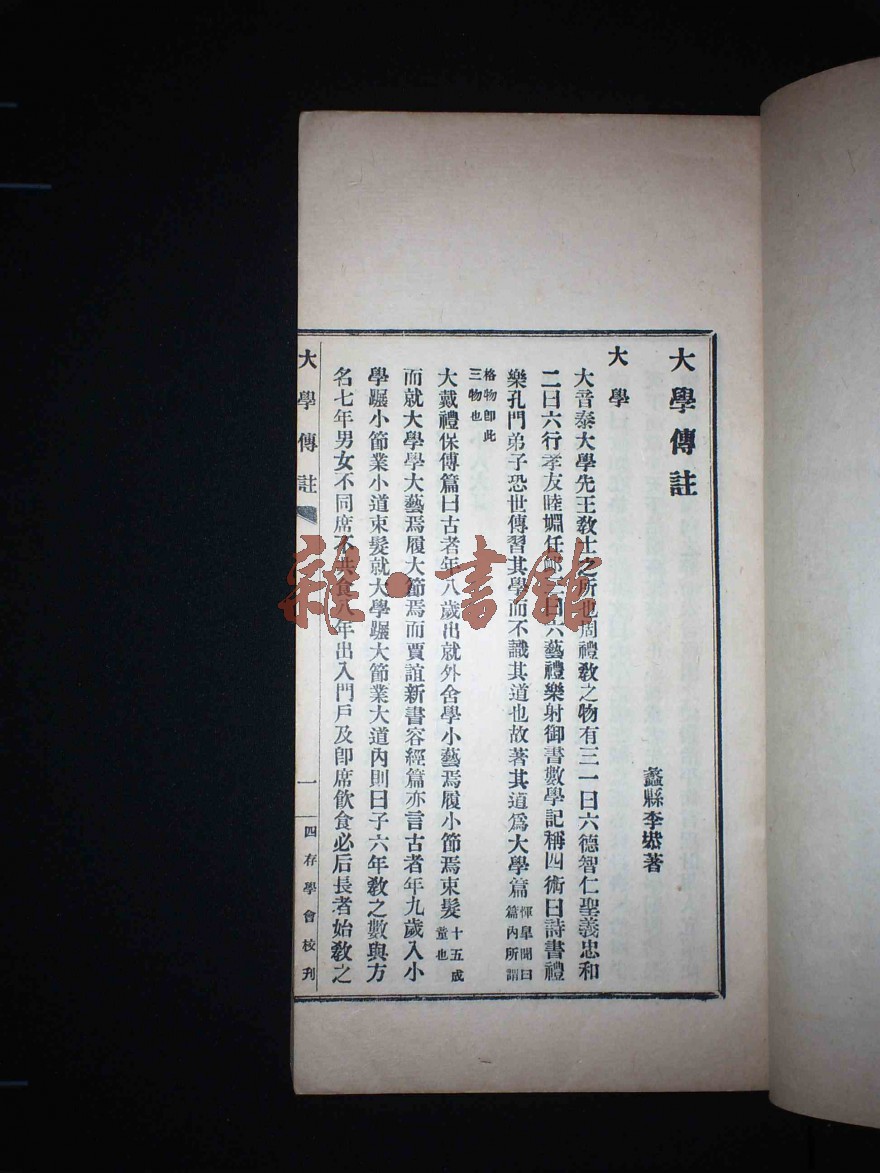 大學傳註
蠡縣李塨著
大學
大音泰大學先王敎士之所也周禮敎之物有三一曰六德智仁聖義忠和
二曰六行孝友睦婣任卹三曰六藝禮樂射御書數學記稱四術曰詩書禮
樂孔門弟子恐世傳習其學而不識其道也故著其道爲大學篇惲皐聞曰
篇內所謂
格物卽此
三物也
大戴禮保傅篇曰古者年八歲出就外舍學小藝焉履小節焉束髮十五成
童也
而就大學學大藝焉履大節焉而賈誼新書容經篇亦言古者年九歲入小
學蹍小節業小道束髮就大學蹍大節業大道內則曰子六年敎之數與方
名七年男女不同席不共食八年出入門戶及卽席飮食必后長者始敎之
大學傳註
一
四存學會校刋
雜·書館